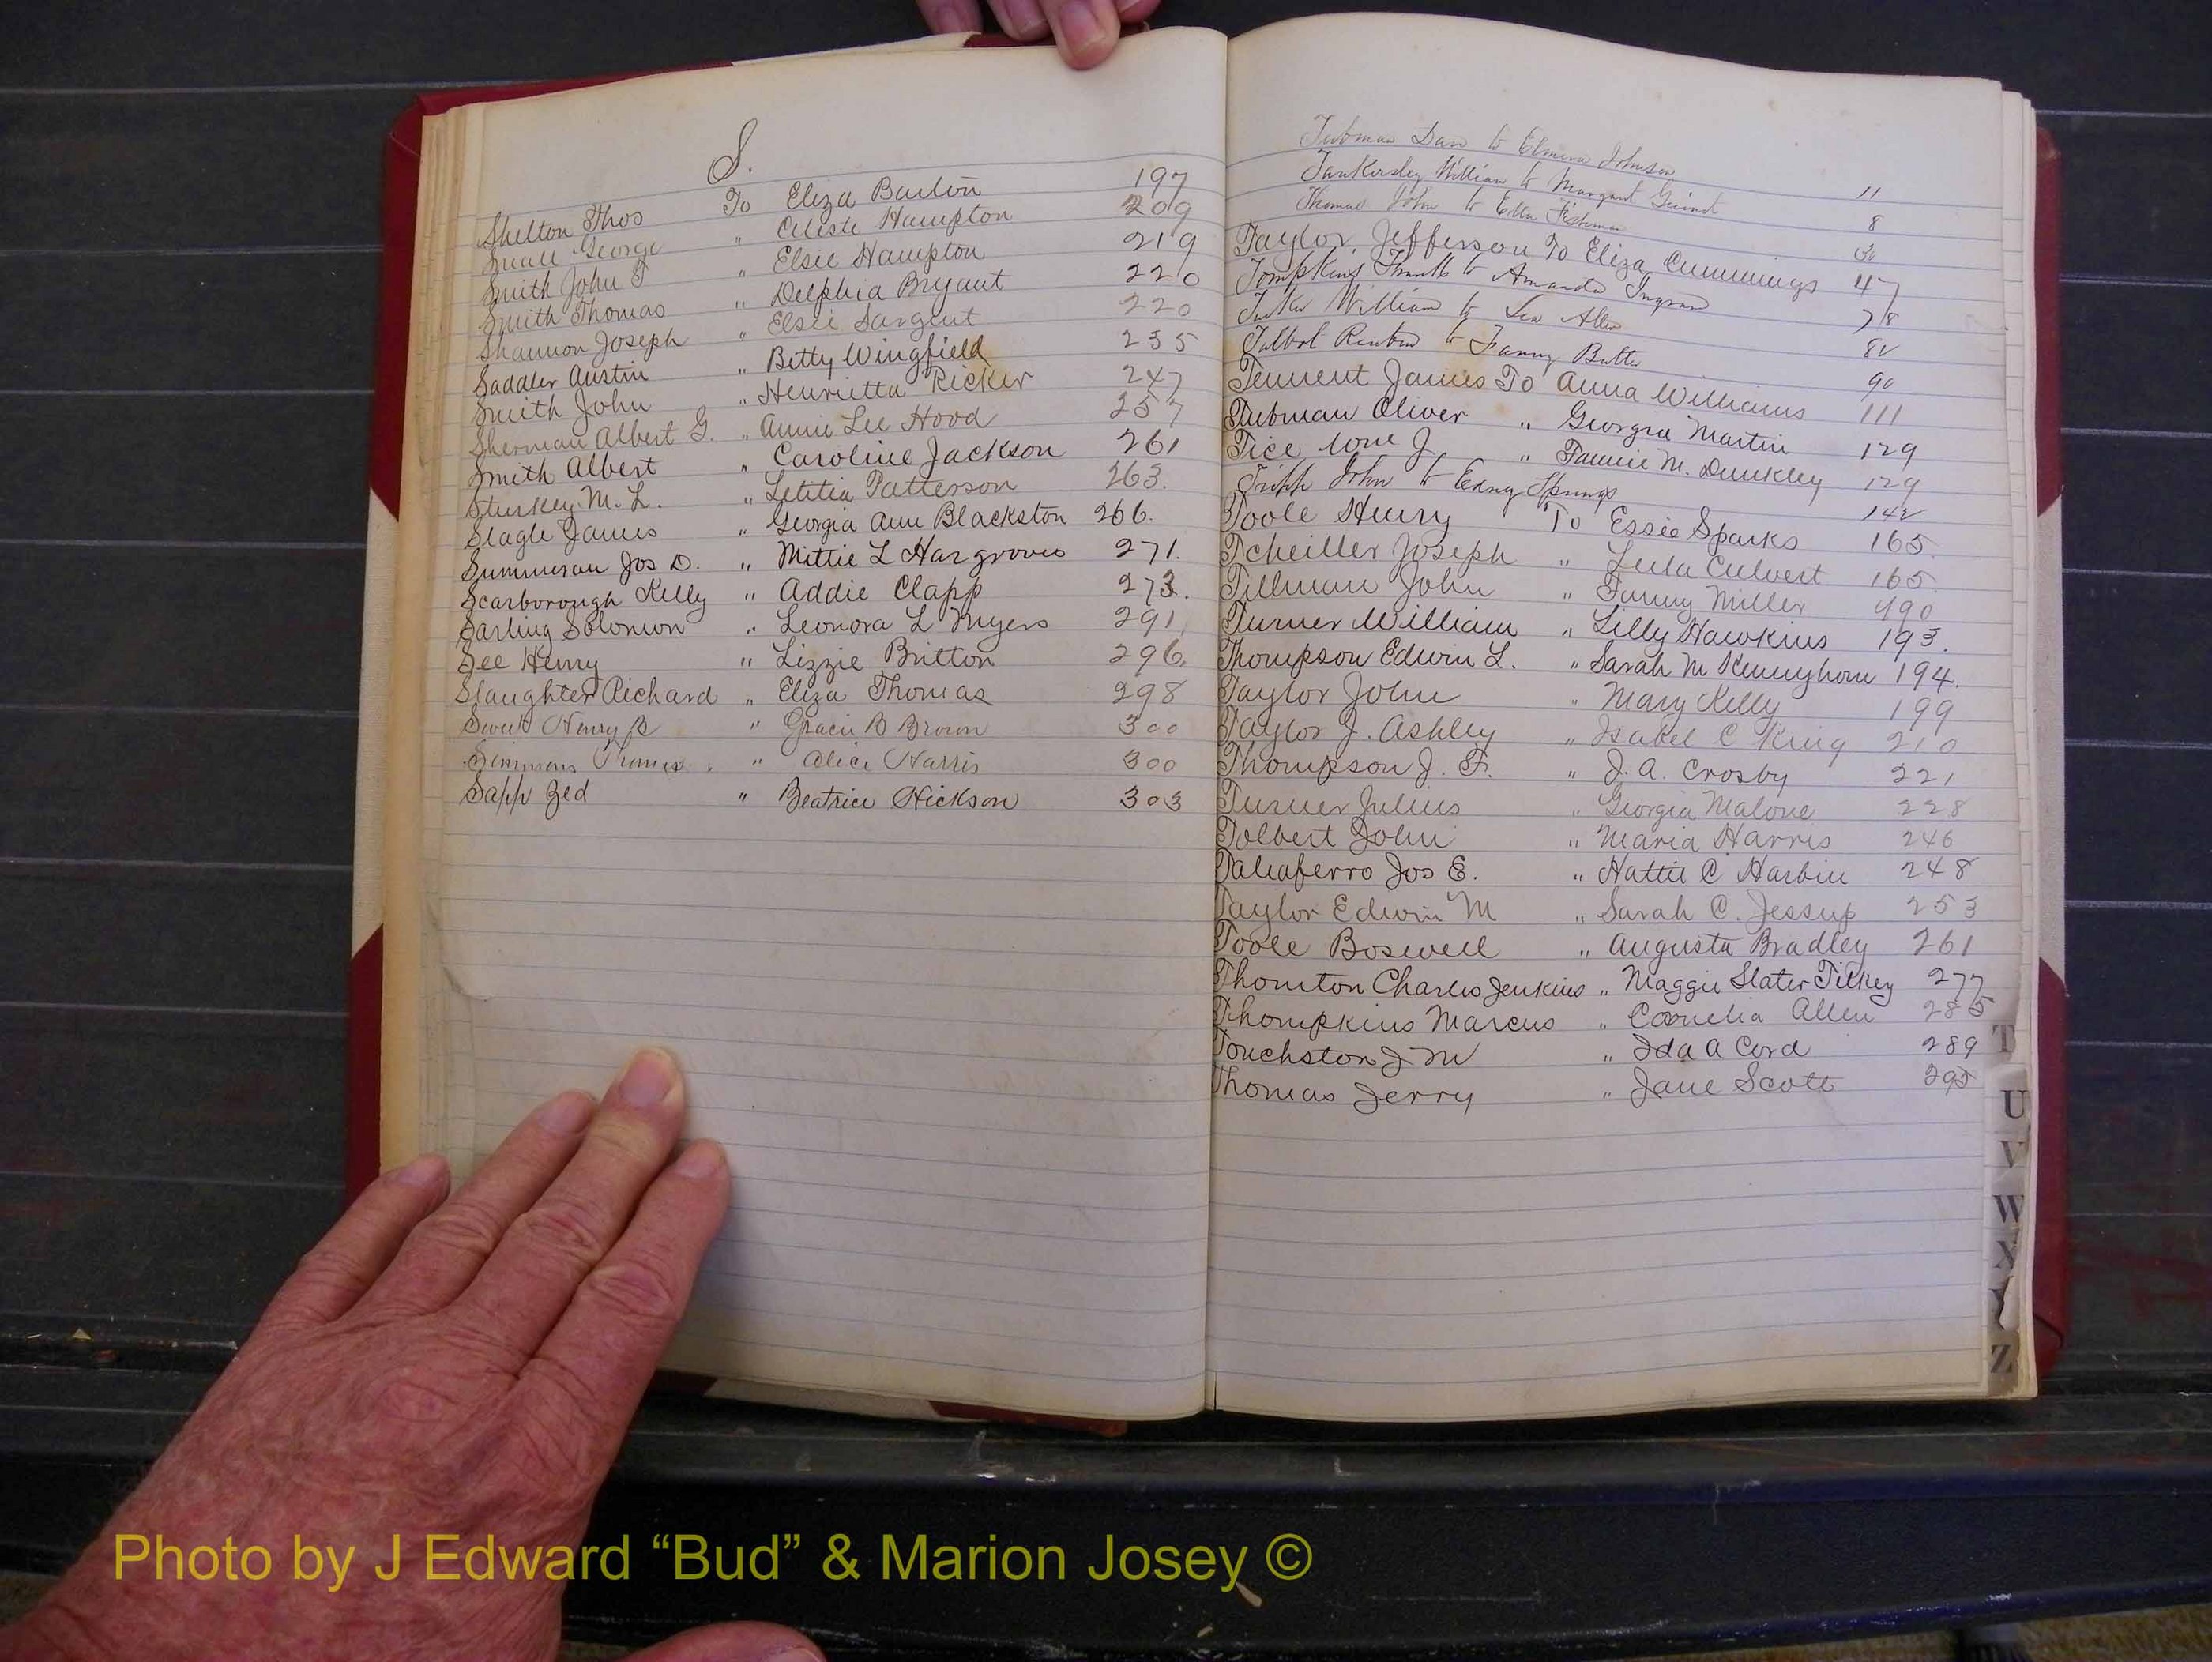 S.
Shelton Thos To Eliza Barton 197
Small George " Celeste Hampton 209
Smith John T " Elsie Hampton 219
Smith Thomas " Delphia Bryant 220
Shannon Joseph " Elsie Sargent 220
Saddler Austin " Betty Wingfield 235
Smith John " Henrietta Ricker 247
Sherman Albert G. " Annie Lee Hood 257
Smith Albert " Caroline Jackson 261
Sturkey M. L. " Letitia Patterson 263.
Slagle James " Georgia Ann Blackston 266.
Summerau Jos D. " Mittie L Hargroves 271.
Scarborough Kelly " Addie Clapp 273.
Sarling Solomon " Leonora L Myers 291
See Henry " Lizzie Britton 296.
Slaughter Richard " Eliza Thomas 298
Sweet Henry B " Gracie B Brown 300
Simmons " Alice Harris 300
Sapp Zed " Beatrice Hickson 303
Tubman Dave to Elmira Johnson 11
Tankersley William to Margaret 8
Thomas John to Etta
Taylor, Jefferson To Eliza Cummings 47
Tompkins Frank to Amanda Ingram 78
William to Allen 82
Talbot Reuben to Fanny Butler 90
Tennent James To Anna Williams 111
Tubman Oliver " Georgia Martin 129
Tice Wm J " Fannie M. Dunkley 129
Tripp John to Edny Springs 142
Toole Henry To Essie Sparks 165.
Tcheiller Joseph " Leila Culvert 165
Tillman John " Fanny Miller 190
Turner William " Lilly Hawkins 193.
Thompson Edwin L. " Sarah M Kennyhorn 194.
Taylor John " Mary Kelly 199
Taylor J. Ashley " Isabel C King 210
Thompson J. F. " J. A. Crosby 221
Turner Julius " Georgia Malone 228
Tolbert John " Maria Harris 246
Taliaferro Jos E. " Hattie C Harbin 248
Taylor Edwin M " Sarah C. Jessup 253
Toole Boswell " Augusta Bradley 261
Thornton Charles Jenkins " Maggie Slater Tilkey 277
Thompkins Marcus " Cornelia Allen 285
Touchston J M " Ida A Cord 289
Thomas Jerry " Jane Scott 295
T
U
V
W
X
Y
Z
Photo by J Edward “Bud” & Marion Josey ©